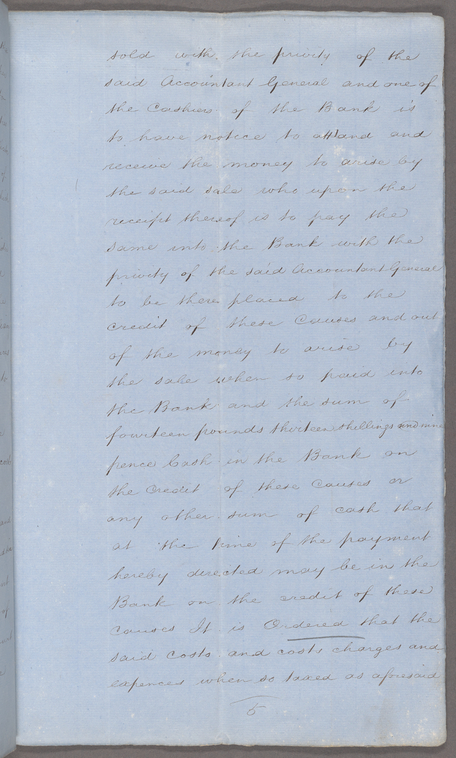 sold with the privity of the
said Accountant General and one of
the Cashiers of the Bank is
to have notice to attend and
receive the money to arise by
the said sale who upon the
receipt thereof is to pay the
same into the Bank with the
privity of the said Accountant General
to be there placed to the
credit of these Causes and out
of the money to arise by
the sale when so paid into
the Bank and the sum of
fourteen pounds thirteen shillings and nine
pence Cash in the Bank on
the Credit of these Causes or
any other sum of cash that
at the time of the payment
hereby directed may be in the
Bank on the credit of these
causes It is Ordered that the
said costs and costs charges and
expences when so taxed as aforesaid
5